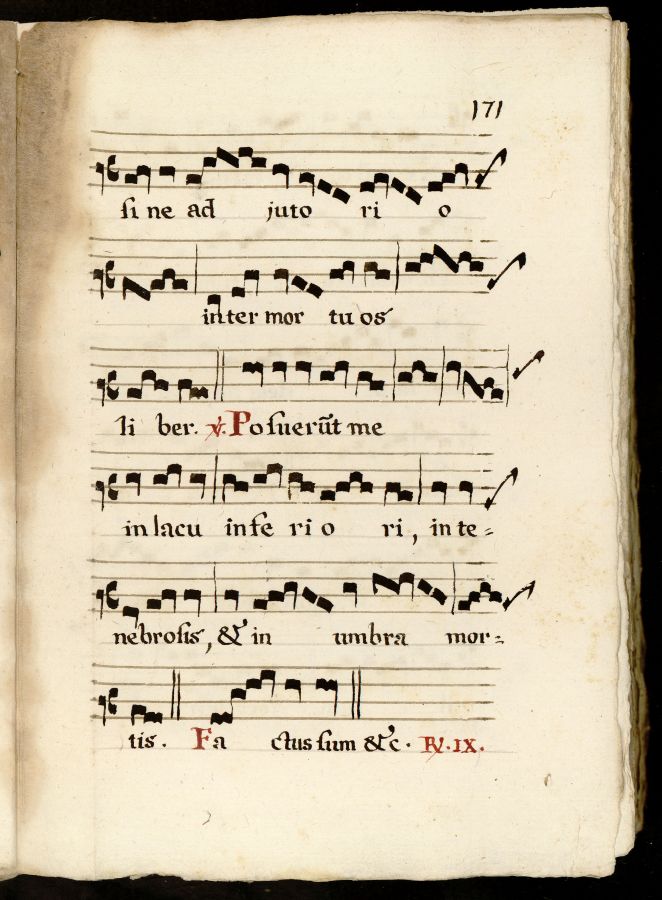 171
sine ad juto ri o
inter mor tu os
li ber. ℣. Posuerūt me
in lacu infe ri o ri, in te=
nebrosis, & in umbra mor=
tis. Fa ctus sum &c. R/. IX.